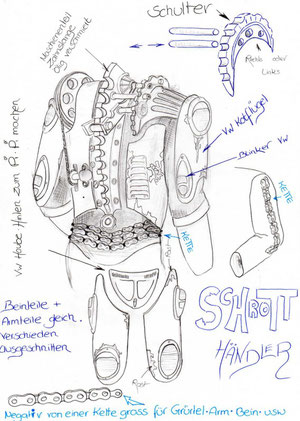 Schulter
Maschinenteil
Zahnstange
Ölig verschmiert
Rechts oder
Links
VW Kotflügel
Blinker VW
VW Haube Hinten zum
machen
KETTE
KETTE
Beinteile +
Armteile gleich.
Verschieden
Ausgeschnitten
SCHROTT
HÄNDLER
Rost
Negativ von einer Kette gross für Gürtel · Arm · Bein · usw